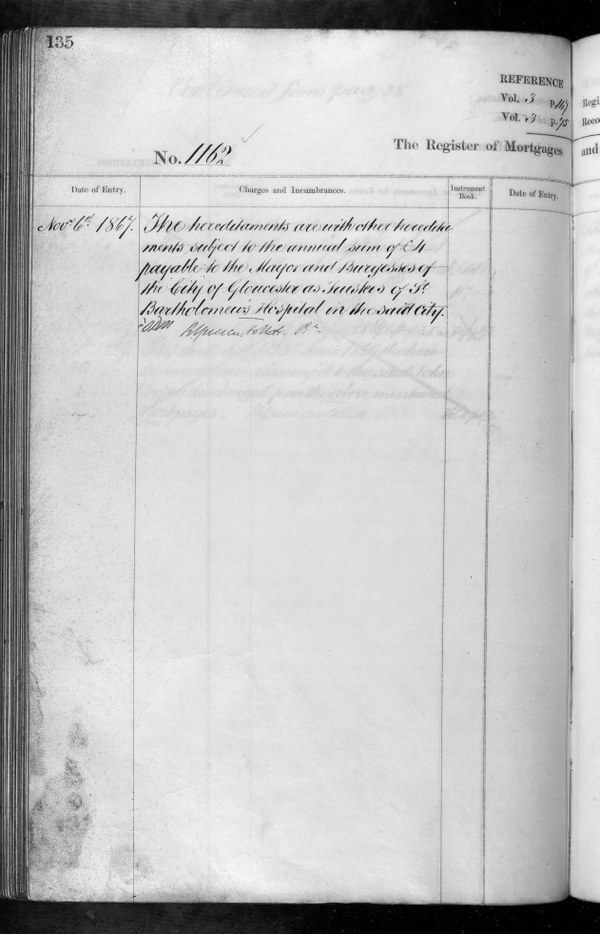 135
REFERENCE
Vol. 3 p. 167
Vol. 3 p. 75
No. 1162
The Register of Mortgages
Date of Entry.
Charges and Incumbrances.
Instrument Book.
Date of Entry.
Nov. 6th 1867.
The hereditaments are with other heredita
ments subject to the annual sum of £4
payable to the Mayor and Burgesses of
the City of Gloucester as Trustees of St
Bartholomew's Hospital in the said City.
Regi
Reco
and